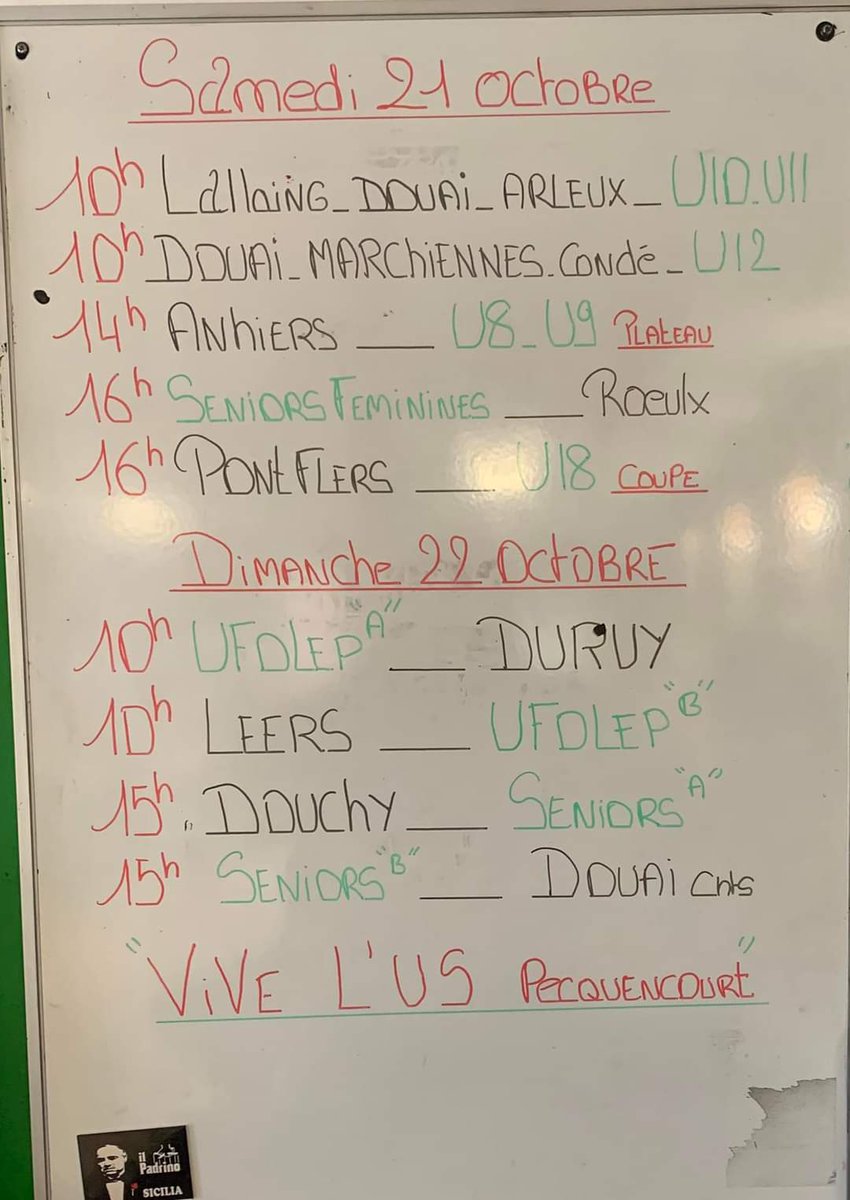 Samedi 21 OCTOBRE
10h LallaiNG_DOUAi_ARLEUX_U10_U11
10h DOUAi_MARChiENNES_CONdé_U12
14h ANhiERS ___ U8_U9 PLATEAU
16h SENiORS FEMiNiNES ___ Roeulx
16h PONt FLERS ___ U18 COUPE
DiMANChe 22 OCTOBRE
10h UFOLEP "A" ___ DURUY
10h LEERS ___ UFOLEP "B"
15h DOUChY ___ SENiORS "A"
15h SENiORS "B" ___ DOUAi Chts
"ViVE L'US PECQUENCOURT"
il Padrino
SICILIA